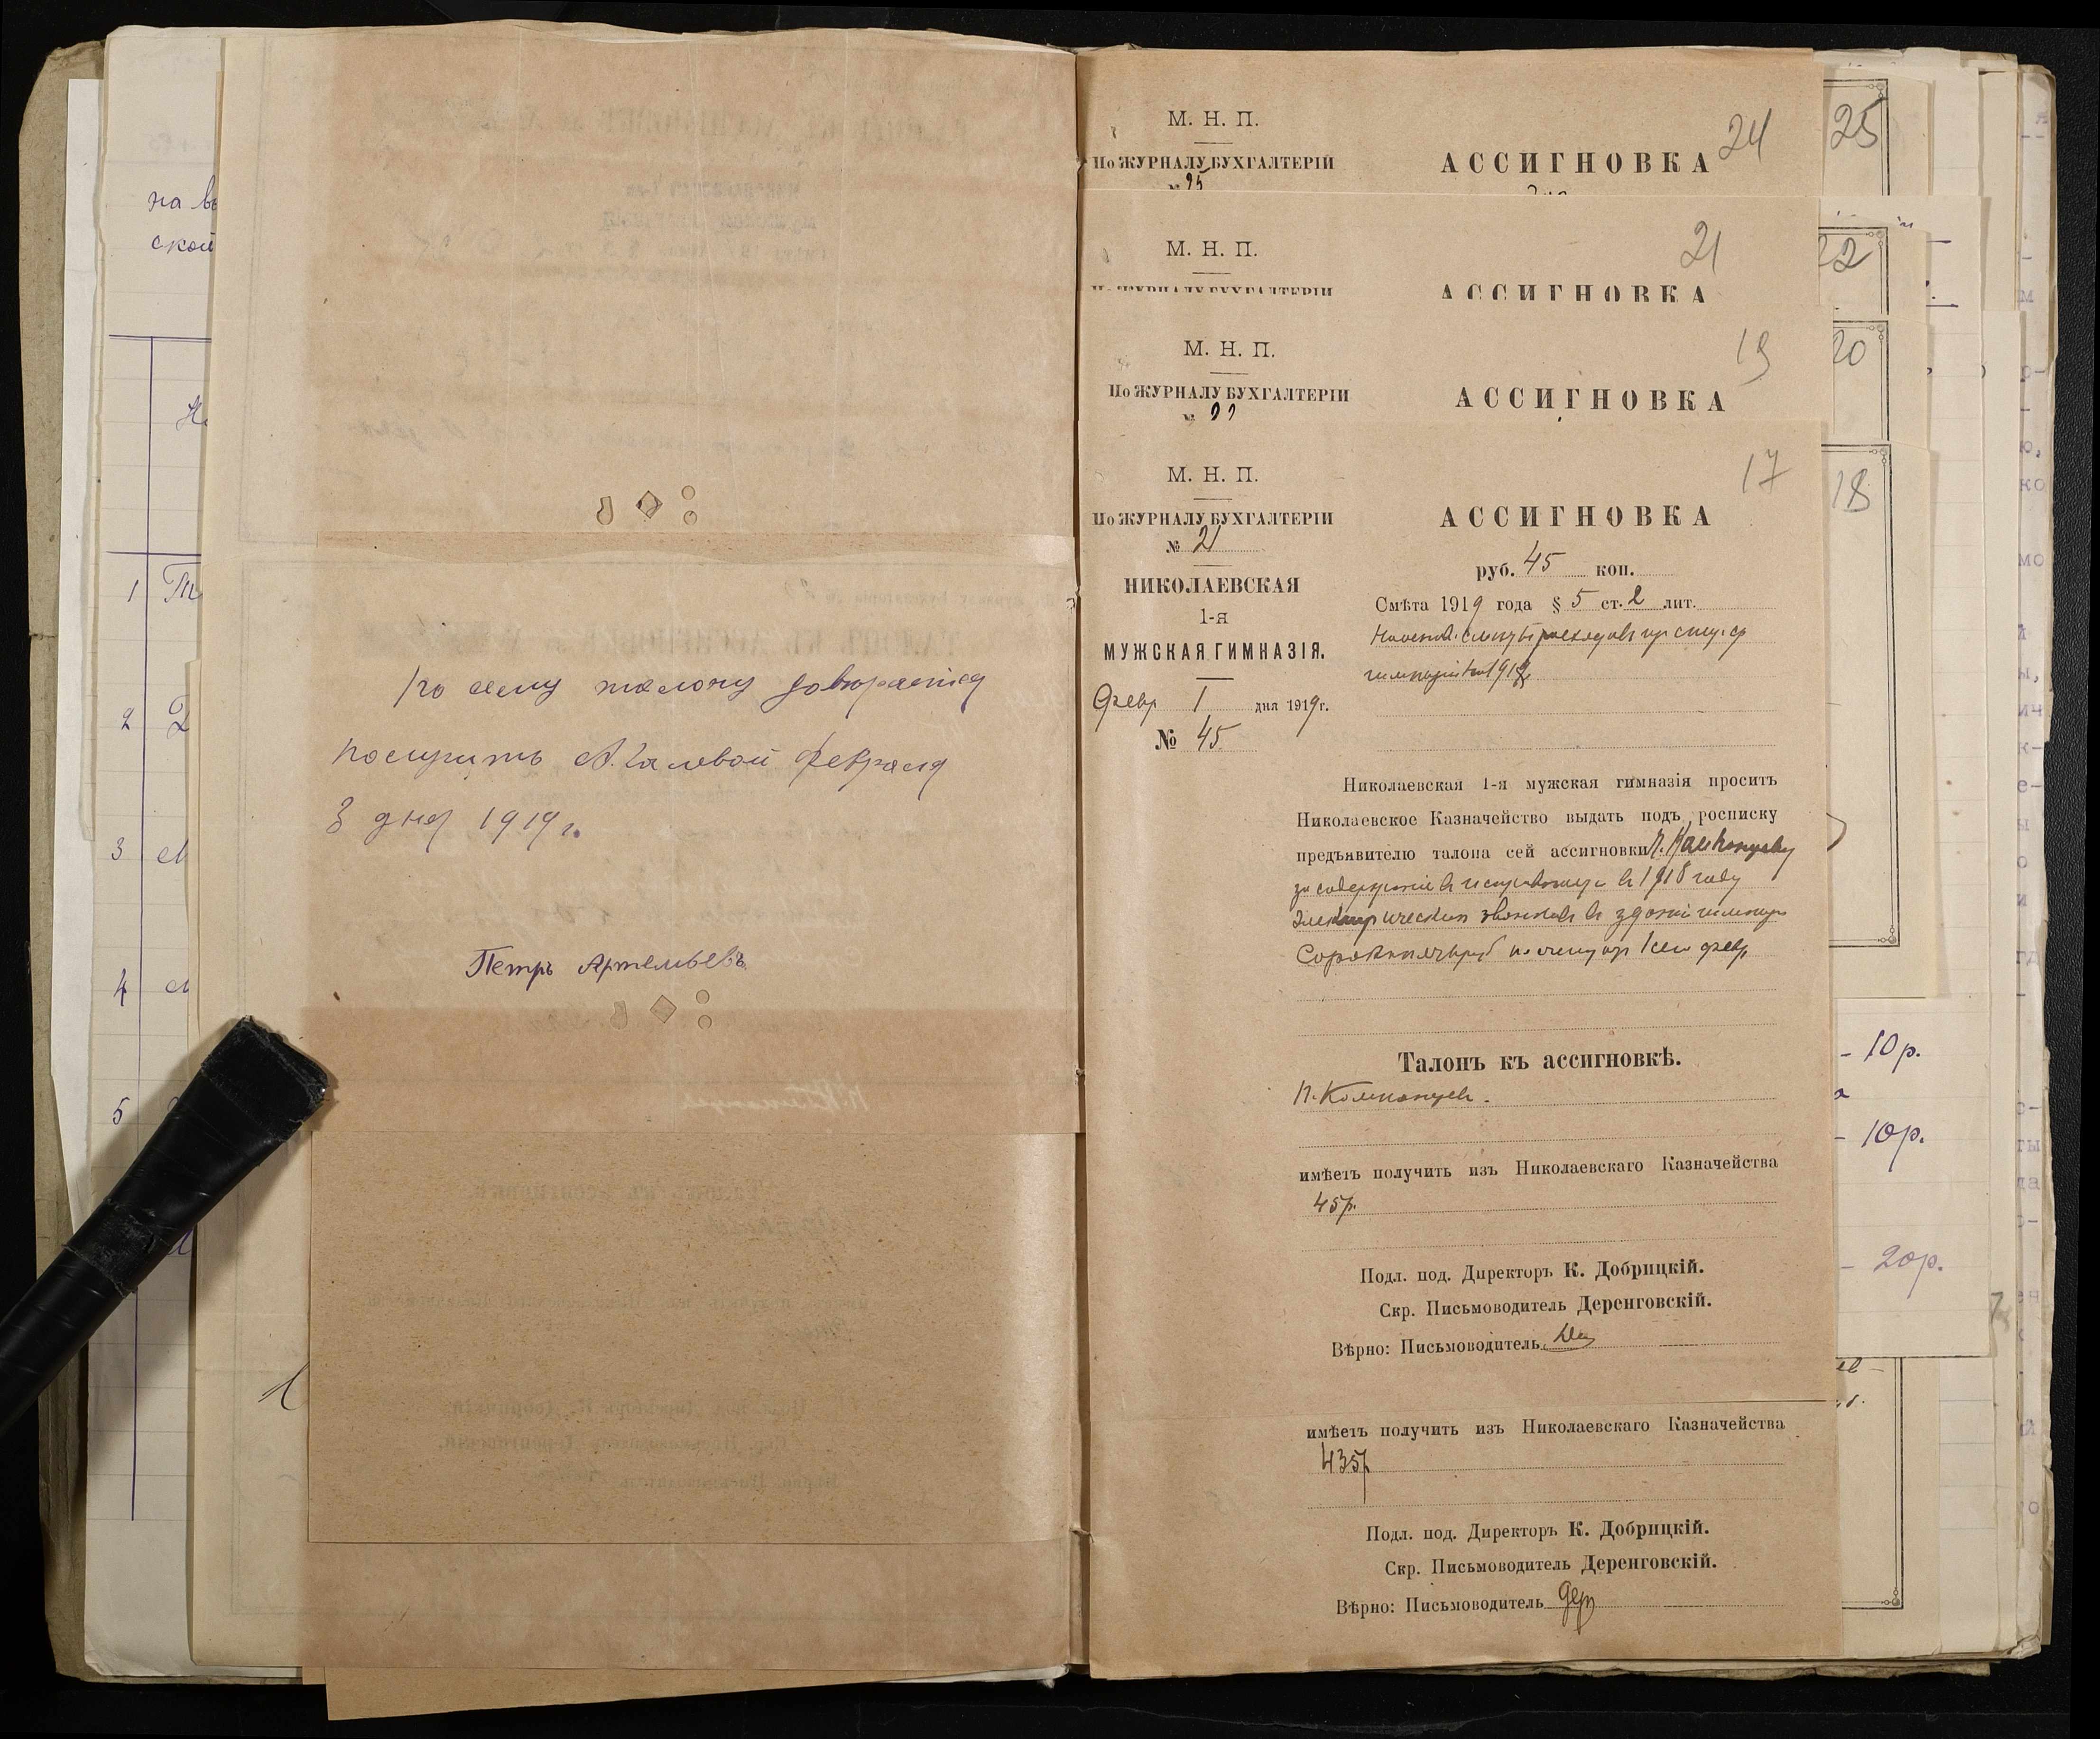 на
ской
1
2
3
4
5
По сему талону доверяется
получить А. Галевой февраля
3 дня 1919 г.
Петръ Артемьевъ
М. Н. П.
По ЖУРНАЛУ БУХГАЛТЕРІИ
№ 25
АССИГНОВКА
24
25
М. Н. П.
АССИГНОВКА
21
22
М. Н. П.
По ЖУРНАЛУ БУХГАЛТЕРІИ
№ 22
АССИГНОВКА
19
20
М. Н. П.
По ЖУРНАЛУ БУХГАЛТЕРІИ
№ 21
НИКОЛАЕВСКАЯ
1-я
МУЖСКАЯ ГИМНАЗІЯ.
Февр 1 дня 1919 г.
№ 45
17
18
АССИГНОВКА
руб. 45 коп.
Смѣта 1919 года § 5 ст. 2 лит.
расходовъ
Николаевская 1-я мужская гимназія проситъ
Николаевское Казначейство выдать подъ росписку
предъявителю талона сей ассигновки П. Компанцеву
за содержаніе въ исправности въ 1918 году
Электрическихъ звонковъ въ зданіи гимназіи
Сорокъ пять руб по счету отъ 1 сего февр.
Талонъ къ ассигновкѣ.
П. Компанцевъ.
имѣетъ получить изъ Николаевскаго Казначейства
45 р.
Подл. под. Директоръ К. Добрицкій.
Скр. Письмоводитель Деренговскій.
Вѣрно: Письмоводитель
имѣетъ получить изъ Николаевскаго Казначейства
435 р
Подл. под. Директоръ К. Добрицкій.
Скр. Письмоводитель Деренговскій.
Вѣрно: Письмоводитель Дер
- 10 р.
- 10 р.
- 20 р.